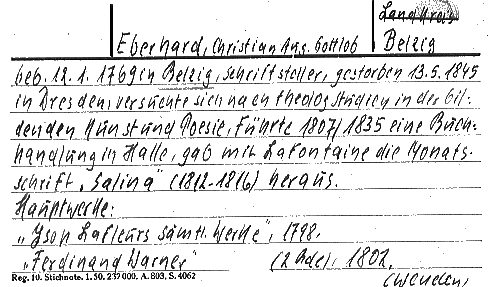 Landkreis
Eberhard, Christian Aug. Gottlob
Belzig
geb. 12.1.1769 in Belzig, Schriftsteller, gestorben 13.5.1845
in Dresden, versuchte sich nach theolog. Studien in der bil-
denden Kunst und Poesie, führte 1807/1835 eine Buch-
handlung in Halle, gab mit Lafontaine die Monats-
schrift „Salina" (1812-1816) heraus.
Hauptwerke:
„Yson Lafleurs sämtl. Werke", 1798.
„Ferdinand Warner" (2 Bde), 1802.
Reg. 10. Stichnote. 1. 50. 237 000. A. 803. S. 4062
(wenden)